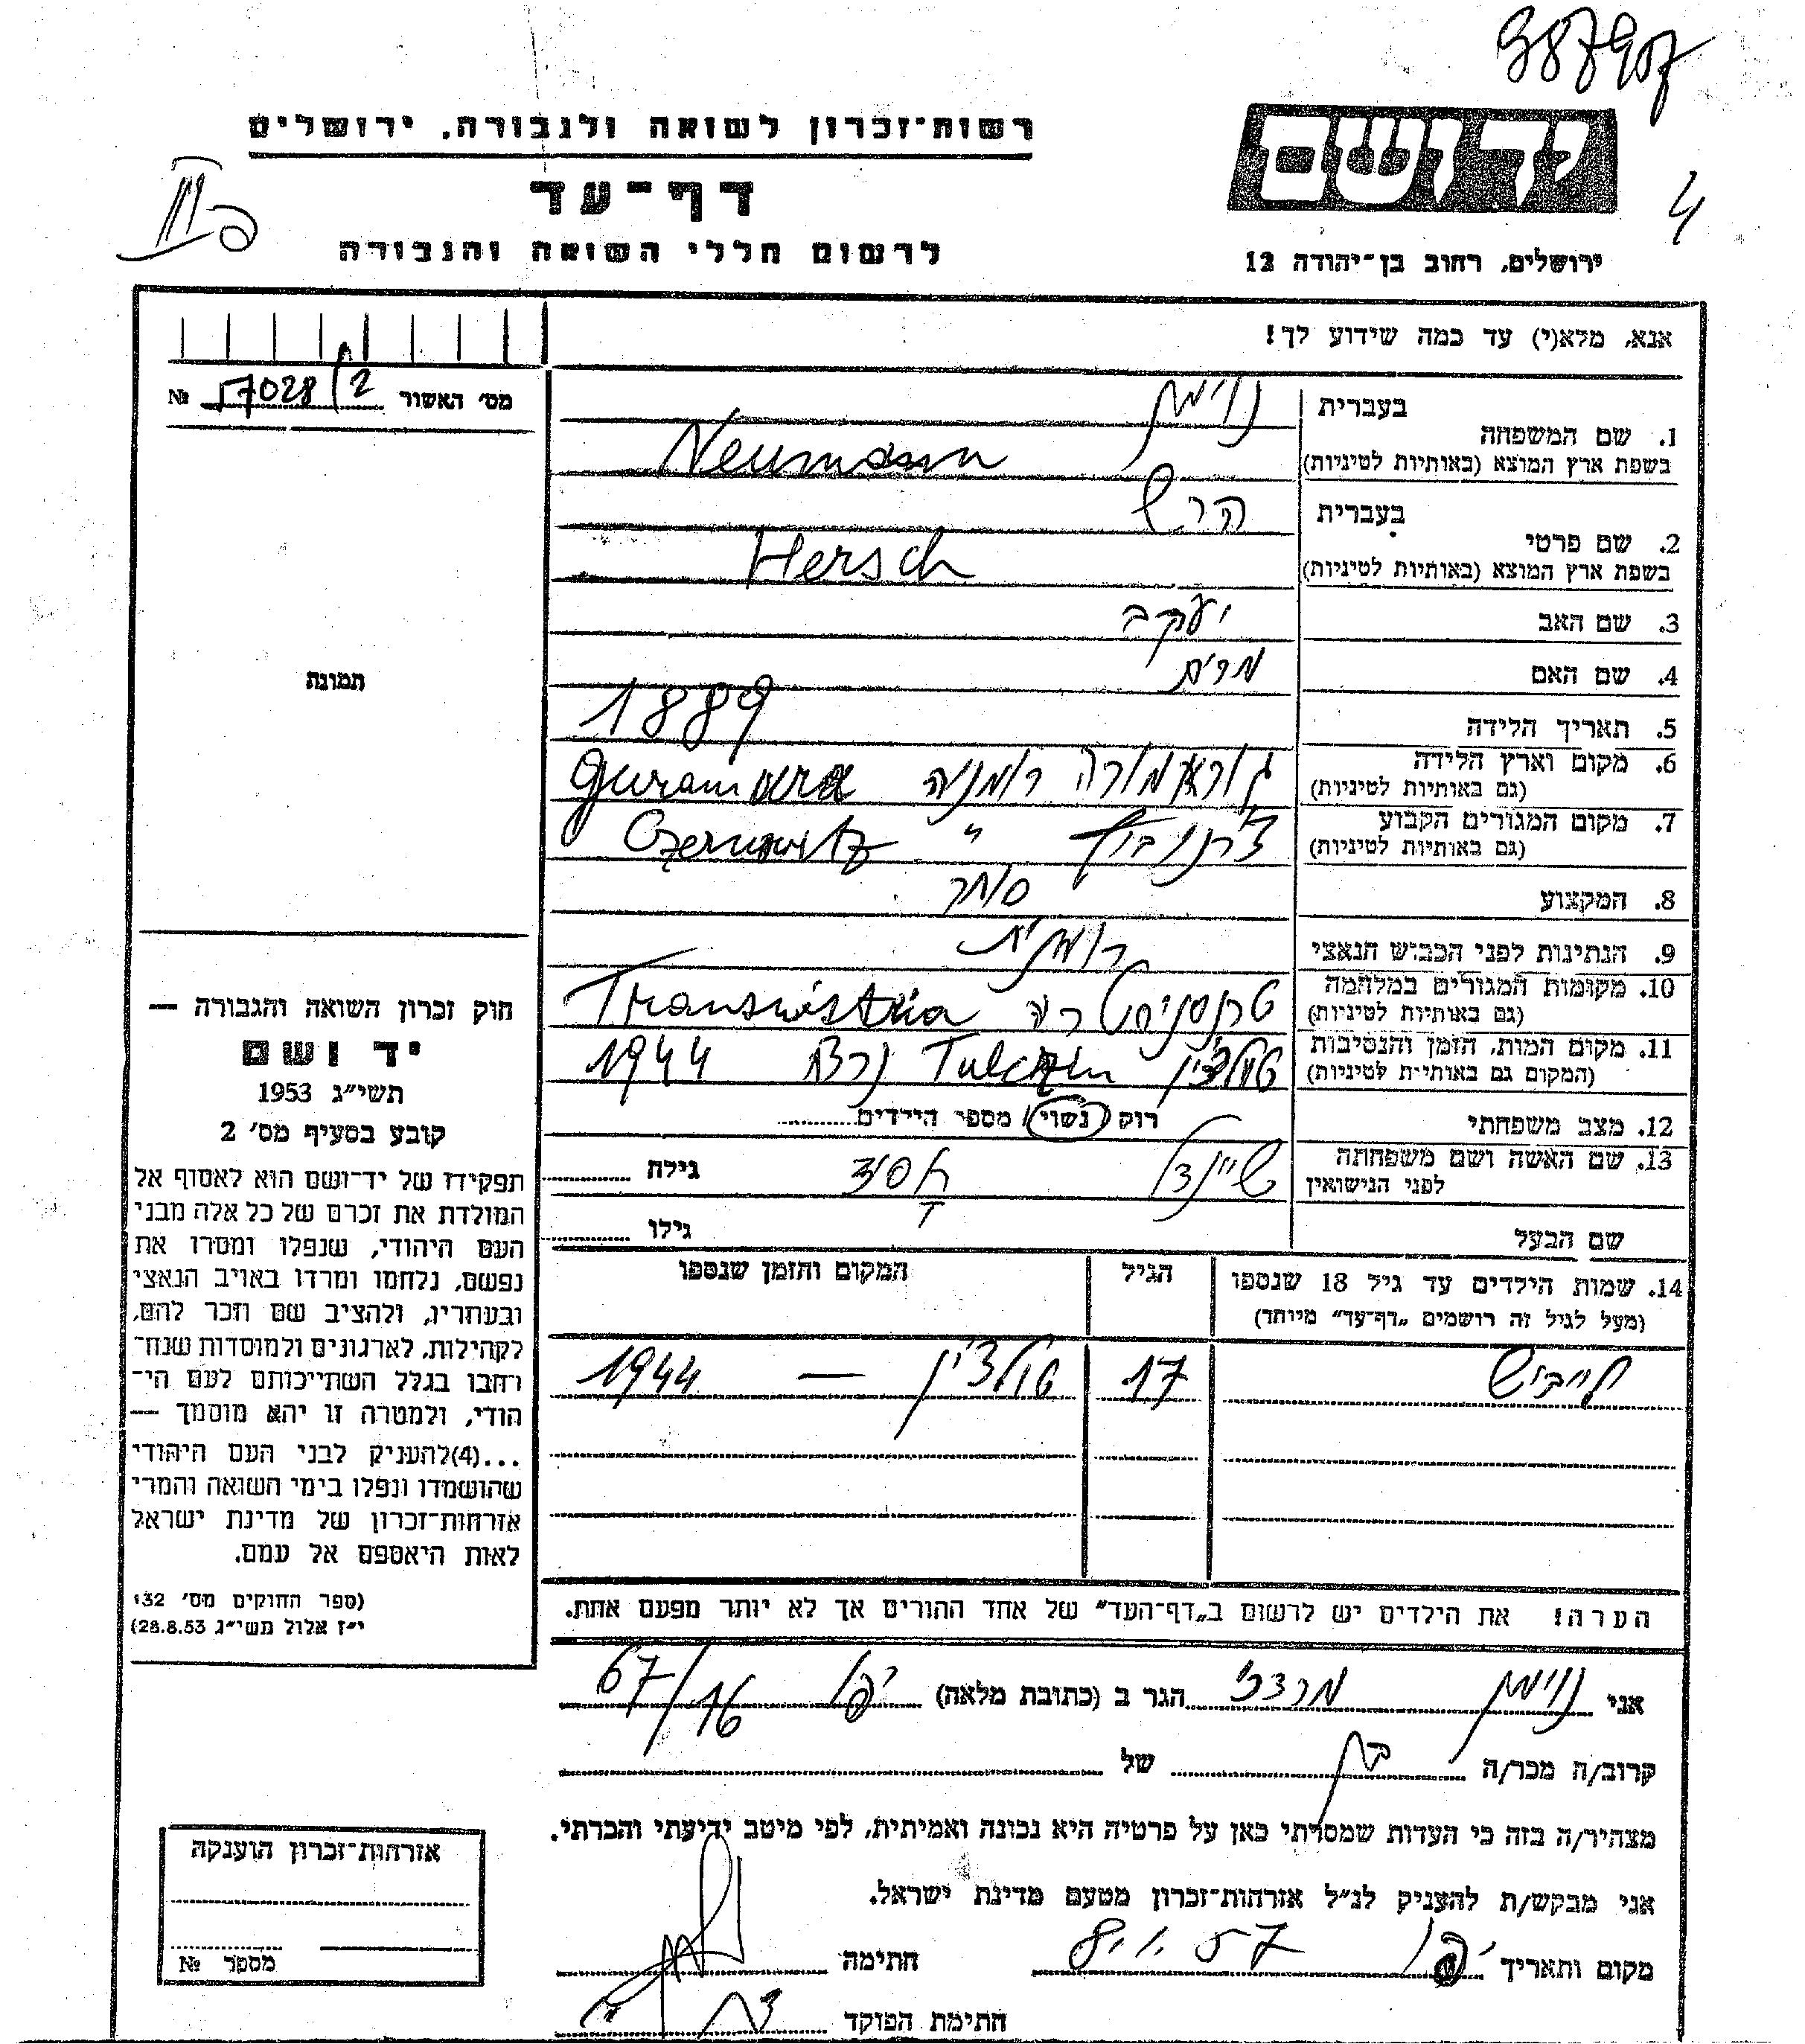 387907
רשות־זכרון לשואה ולגבורה, ירושלים
יד ושם
דף־עד
4
לרשום חללי השואה והגבורה
ירושלים, רחוב בן־יהודה 12
אנא, מלא(י) עד כמה שידוע לך!
מס' האשור 57028/2 №
בעברית נוימן
1. שם המשפחה
בשפת ארץ המוצא (באותיות לטיניות) Neumann
בעברית הרש
2. שם פרטי
בשפת ארץ המוצא (באותיות לטיניות) Hersch
3. שם האב יעקב
4. שם האם מרים
תמונה
5. תאריך הלידה 1889
6. מקום וארץ הלידה גוראמורה רומניה Guramora
(גם באותיות לטיניות)
7. מקום המגורים הקבוע צ'רנוביץ " Czernowitz
(גם באותיות לטיניות)
8. המקצוע סוחר
9. הנתינות לפני הכבוש הנאצי רומנית
10. מקומות המגורים במלחמה טרנסניסטריה Transnistria
(גם באותיות לטיניות)
11. מקום המות, הזמן והנסיבות טולצ'ין Tulczin 1944
(המקום גם באותיות לטיניות)
12. מצב משפחתי רוק (נשוי) / מספר הילדים
13. שם האשה ושם משפחתה שיינדל גילה
לפני הנישואין
שם הבעל גילו
14. שמות הילדים עד גיל 18 שנספו הגיל המקום והזמן שנספו
(מעל לגיל זה רושמים „דף־עד" מיוחד)
לייביש 17 טולצ'ין — 1944
הערה! את הילדים יש לרשום ב„דף־העד" של אחד ההורים אך לא יותר מפעם אחת.
חוק זכרון השואה והגבורה —
יד ושם
תשי"ג 1953
קובע בסעיף מס' 2
תפקידו של יד־ושם הוא לאסוף אל
המולדת את זכרם של כל אלה מבני
העם היהודי, שנפלו ומסרו את
נפשם, נלחמו ומרדו באויב הנאצי
ובעוזריו, ולהציב שם וזכר להם,
לקהילות, לארגונים ולמוסדות שנח־
רחבו בגלל השתייכותם לעם הי־
הודי, ולמטרה זו יהא מוסמך —
...(4)להעניק לבני העם היהודי
שהושמדו ונפלו בימי השואה והמרי
אזרחות־זכרון של מדינת ישראל
לאות היאספם אל עמם.
(ספר החוקים מס' 132
י"ז אלול תשי"ג 28.8.53)
אני נוימן מרדכי הגר ב (כתובת מלאה) יפו 67/16
קרוב/ה מכר/ה בן של
מצהיר/ה בזה כי העדות שמסרתי כאן על פרטיה היא נכונה ואמיתית, לפי מיטב ידיעתי והכרתי.
אני מבקש/ת להעניק לנ"ל אזרחות־זכרון מטעם מדינת ישראל.
מקום ותאריך יפו 8.1.57 חתימה
חתימת הפוקד
אזרחות־זכרון הוענקה
מספר №